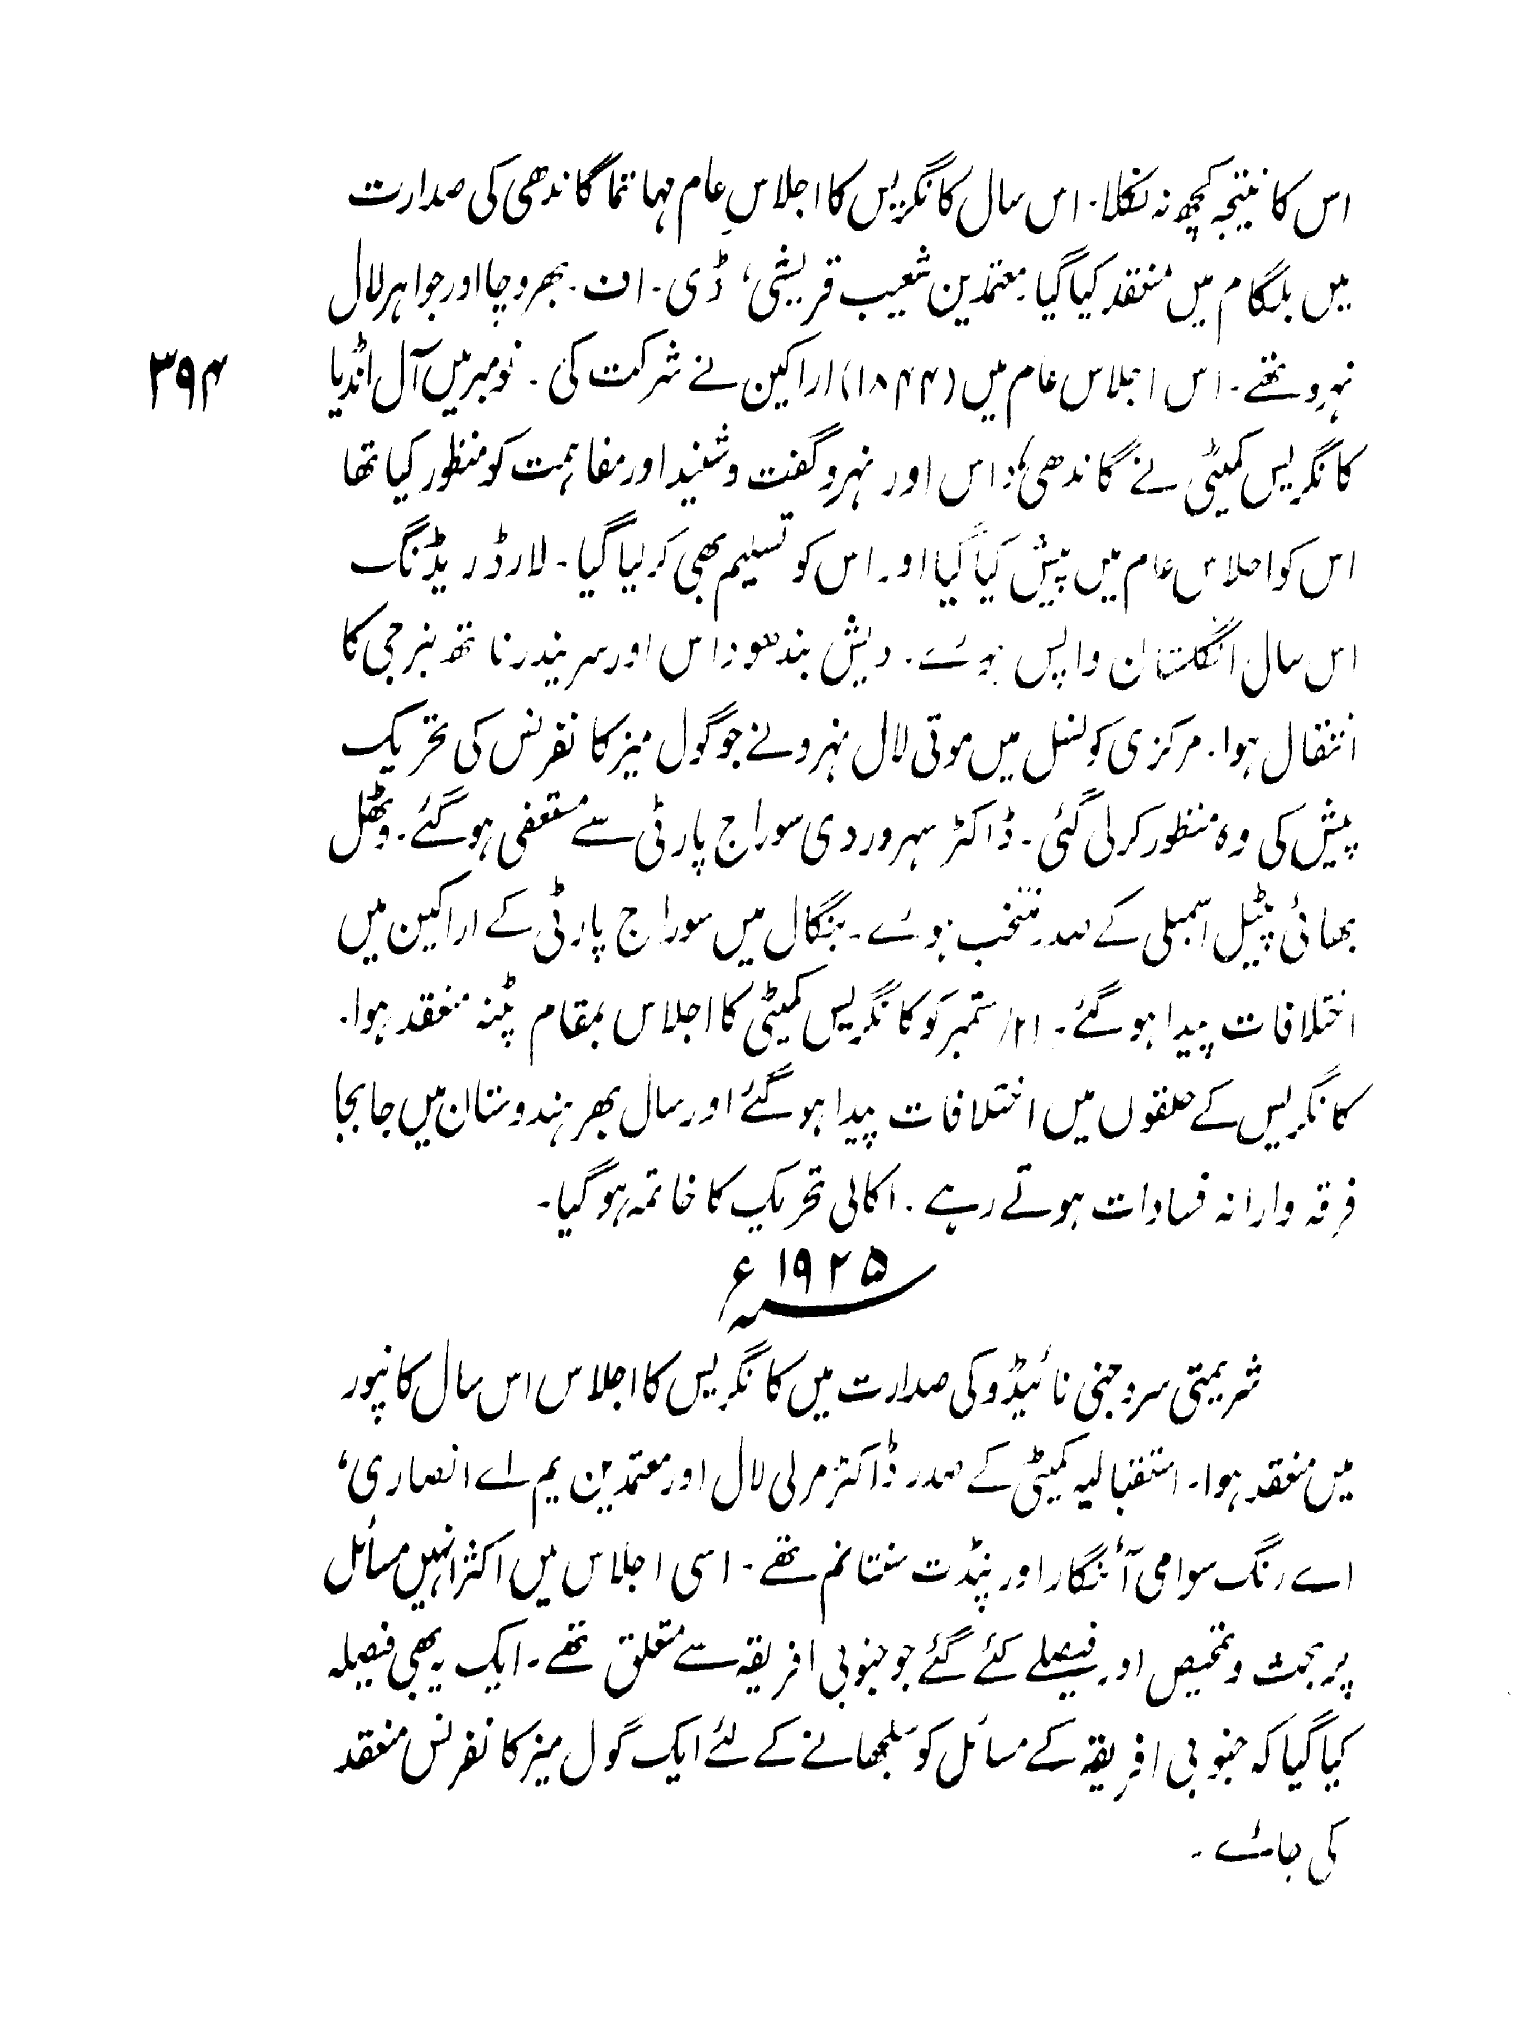 اس کا نتیجہ کچھ نہ نکلا۔ اس سال کانگریس کا اجلاسِ عام مہاتما گاندھی کی صدارت
میں بلگام میں منعقد کیا گیا۔ معتمدین شعیب قریشی، ڈی۔ ان۔ بھروچا اور جواہر لال
نہرو تھے۔ اس اجلاس عام میں (۱۸۴۴) اراکین نے شرکت کی۔ نومبر میں آل انڈیا
۳۹۴
کانگریس کمیٹی نے گاندھی، داس اور نہرو گفت و شنید اور مفاہمت کو منظور کیا تھا
اس کو اجلاس عام میں پیش کیا گیا اور اس کو تسلیم بھی کر لیا گیا۔ لارڈ ریڈنگ
اس سال انگلستان واپس ہوئے۔ دیش بندھو داس اور سریندر ناتھ بنرجی کا
انتقال ہوا۔ مرکزی کونسل میں موتی لال نہرو نے جو گول میز کانفرنس کی تحریک
پیش کی وہ منظور کر لی گئی۔ ڈاکٹر سہروردی سوراج پارٹی سے مستعفی ہو گئے۔ وٹھل
بھائی پٹیل اسمبلی کے صدر منتخب ہوئے۔ بنگال میں سوراج پارٹی کے اراکین میں
اختلافات پیدا ہو گئے۔ ۲۱/ ستمبر کو کانگریس کمیٹی کا اجلاس بمقام پٹنہ منعقد ہوا۔
کانگریس کے حلقوں میں اختلافات پیدا ہو گئے اور سال بھر ہندوستان میں جا بجا
فرقہ وارانہ فسادات ہوتے رہے۔ اکالی تحریک کا خاتمہ ہو گیا۔
۱۹۲۵ء
شریمتی سروجنی نائیڈو کی صدارت میں کانگریس کا اجلاس اس سال کانپور
میں منعقد ہوا۔ استقبالیہ کمیٹی کے صدر ڈاکٹر مرلی لال اور معتمدین یم اے انصاری،
اے رنگ سوامی آئنگار اور پنڈت سنتانم تھے۔ اسی اجلاس میں اکثر انہیں مسائل
پر بحث و تمحیص اور فیصلے کئے گئے جو جنوبی افریقہ سے متعلق تھے۔ ایک یہ بھی فیصلہ
کیا گیا کہ جنوبی افریقہ کے مسائل کو سلجھانے کے لئے ایک گول میز کانفرنس منعقد
کی جائے۔